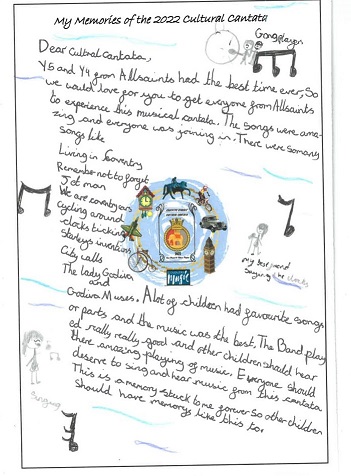 My Memories of the 2022 Cultural Cantata
Gong player
Dear Cultral Cantata,
Y5 and Y4 from Allsaints had the best time ever, So
we would love for you to get everyone from Allsaints
to experience this musical cantata. The songs were ama-
zing and everyone was joining in. There were so many
songs like
Living in Coventry
Remember not to forget
Jet man
We are coventry ears
Cycling around
clocks ticking
starleys inventions
City calls
The lady Godiva
and
Godiva Muses. A lot of children had favourite songs
or parts and the music was the best. The Band play
ed really really good and other children should hear
there amazing playing of music. Everyone should
deserve to sing and hear music from this cantata
This is a memory stuck to me forever so other children
should have memorys like this to.
my best friend
singing
music